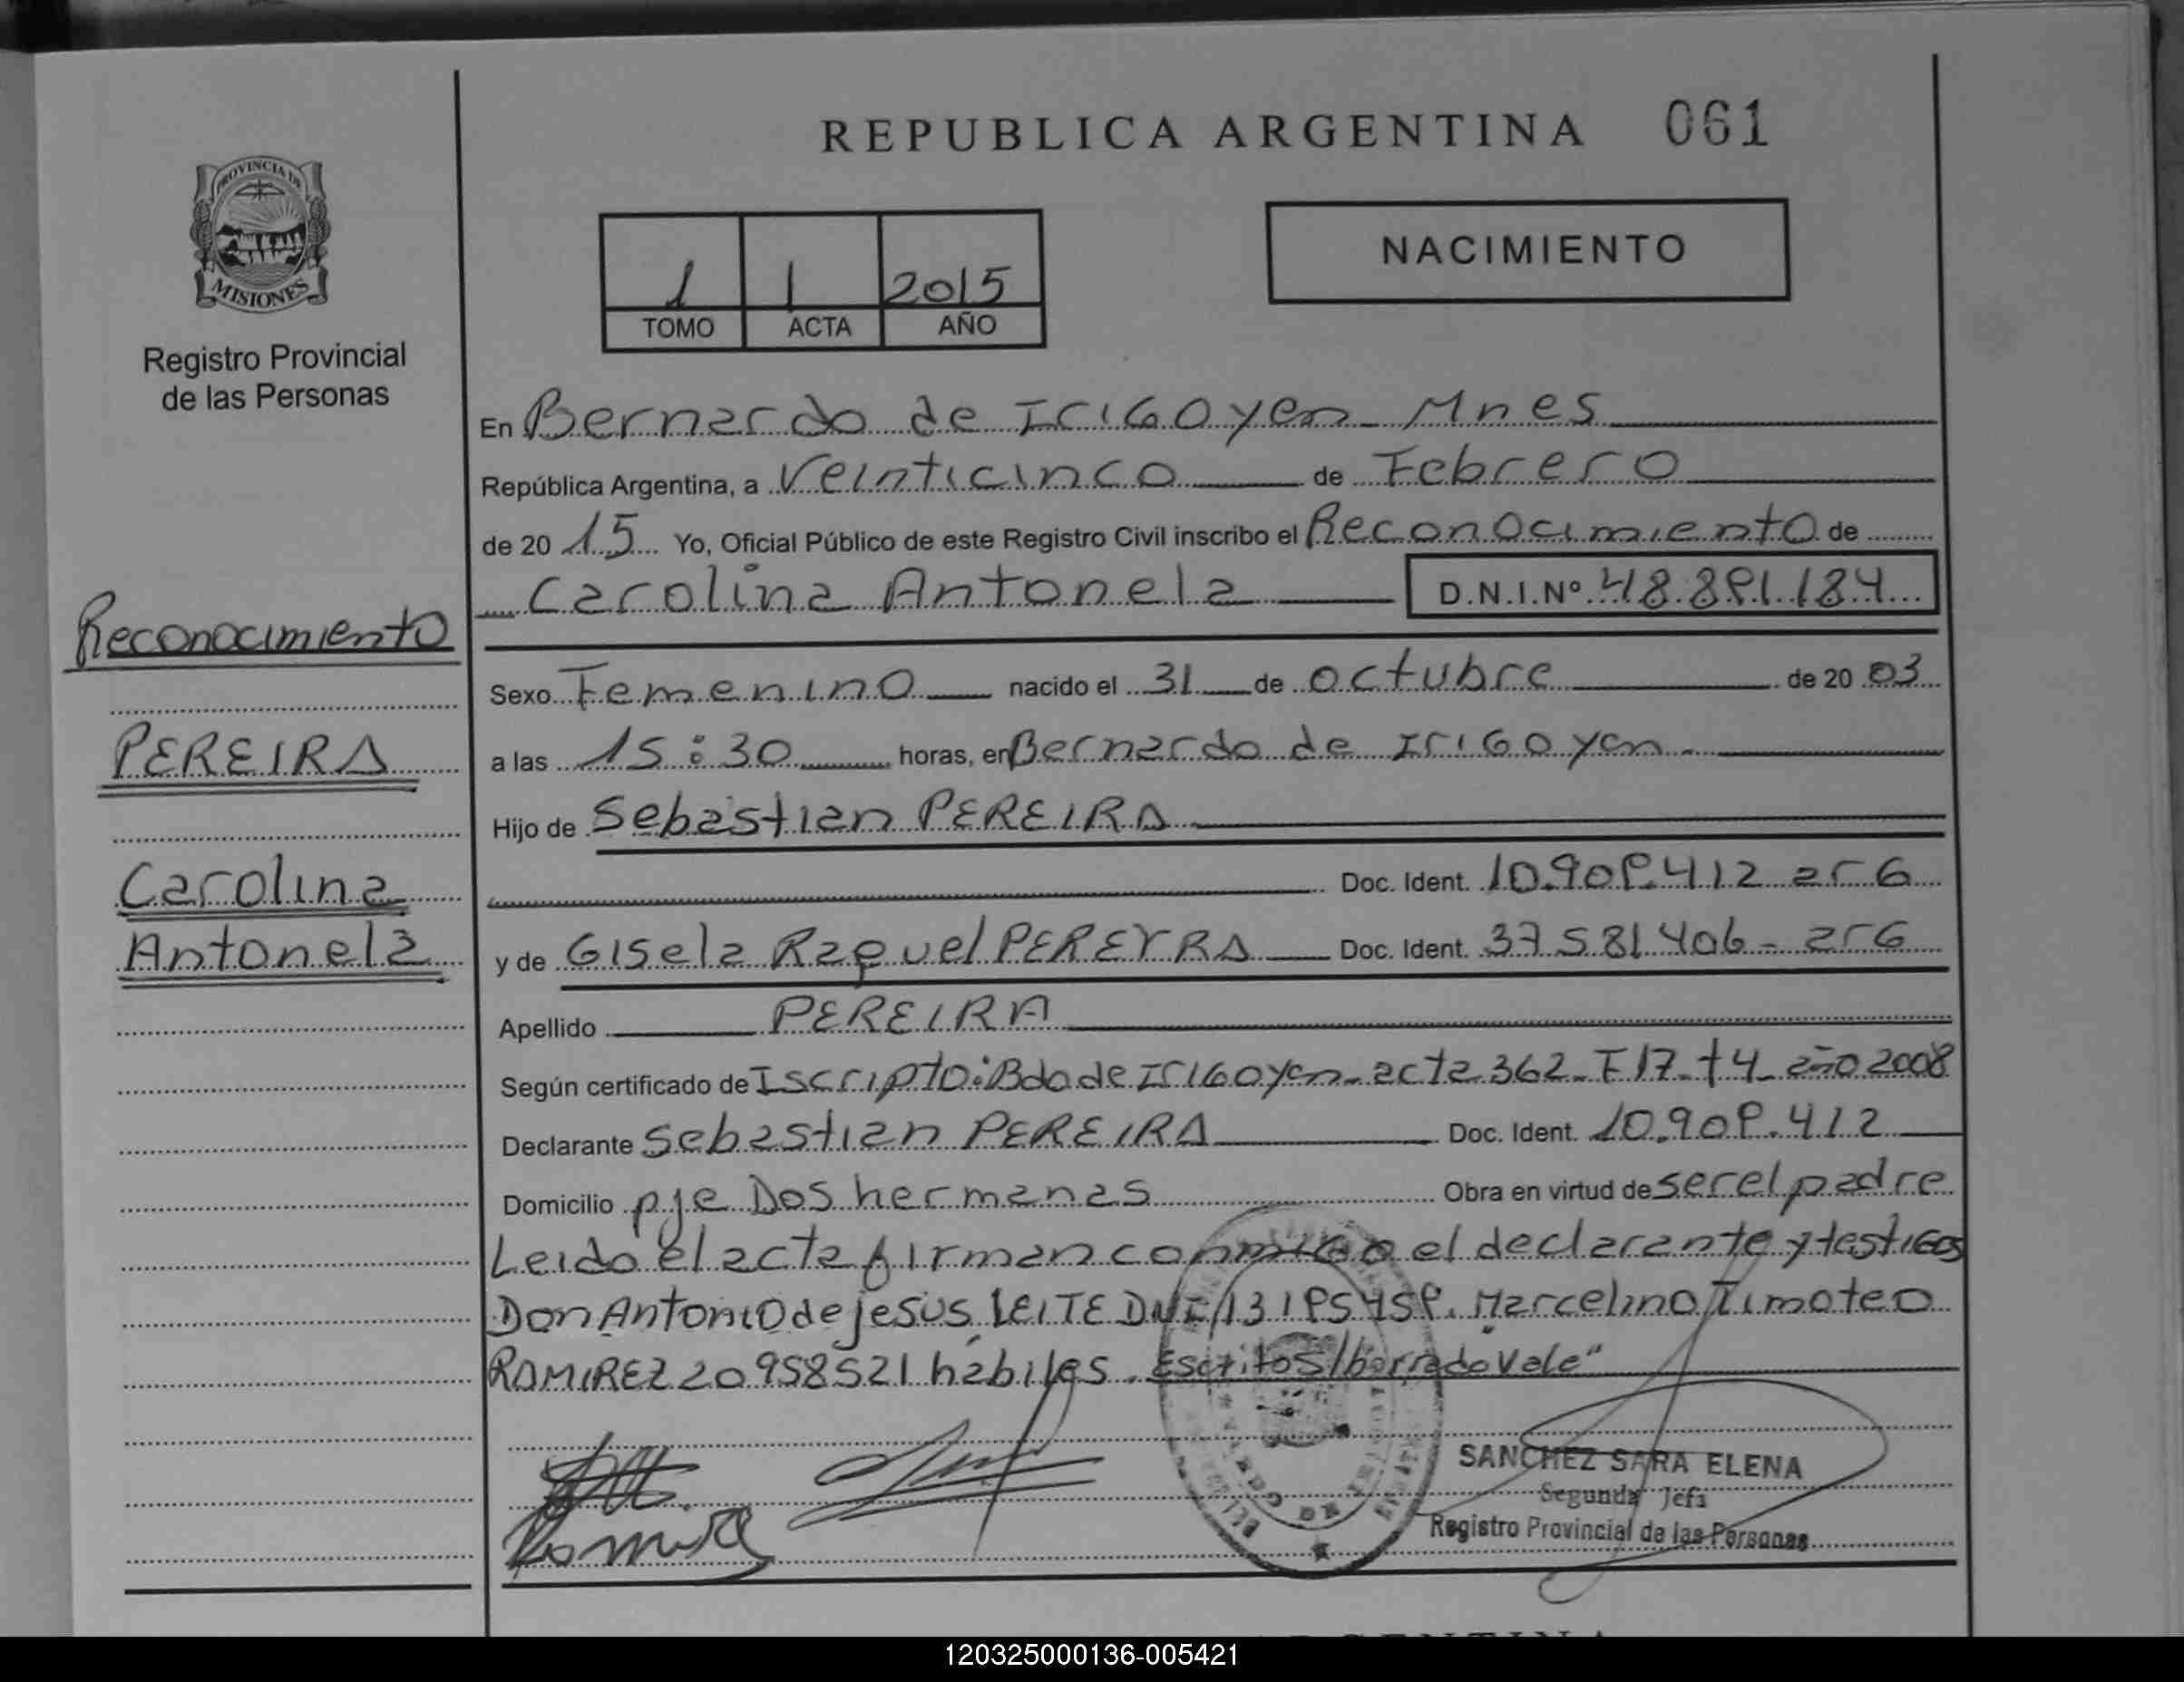 REPUBLICA ARGENTINA 061
PROVINCIA DE
MISIONES
Registro Provincial
de las Personas
1 1 2015
TOMO ACTA AÑO
NACIMIENTO
En Bernardo de Irigoyen - Mnes
República Argentina, a Veinticinco de Febrero
de 20 15 Yo, Oficial Público de este Registro Civil inscribo el Reconocimiento de
Carolina Antonela D.N.I.Nº 48.891.184
Reconocimiento
PEREIRA
Carolina
Antonela
Sexo Femenino nacido el 31 de octubre de 20 03
a las 15:30 horas, en Bernardo de Irigoyen -
Hijo de Sebastian PEREIRA
Doc. Ident. 10.909.412 arG
y de Gisela Raquel PEREYRA Doc. Ident. 37581406 - arG
Apellido PEREIRA
Según certificado de Iscripto: Bdo de Irigoyen - acta 362 - F17 - t4 - año 2008
Declarante Sebastian PEREIRA Doc. Ident. 10.909.412
Domicilio pje Dos hermanas Obra en virtud de ser el padre
Leido el acta firman conmigo el declarante y testigos
Don Antonio de jesus LEITE DNI Marcelino Timoteo
RAMIREZ 20958521 habiles. Escritos/borrado Vale"
SANCHEZ SARA ELENA
Segunda Jefa
Registro Provincial de las Personas
120325000136-005421